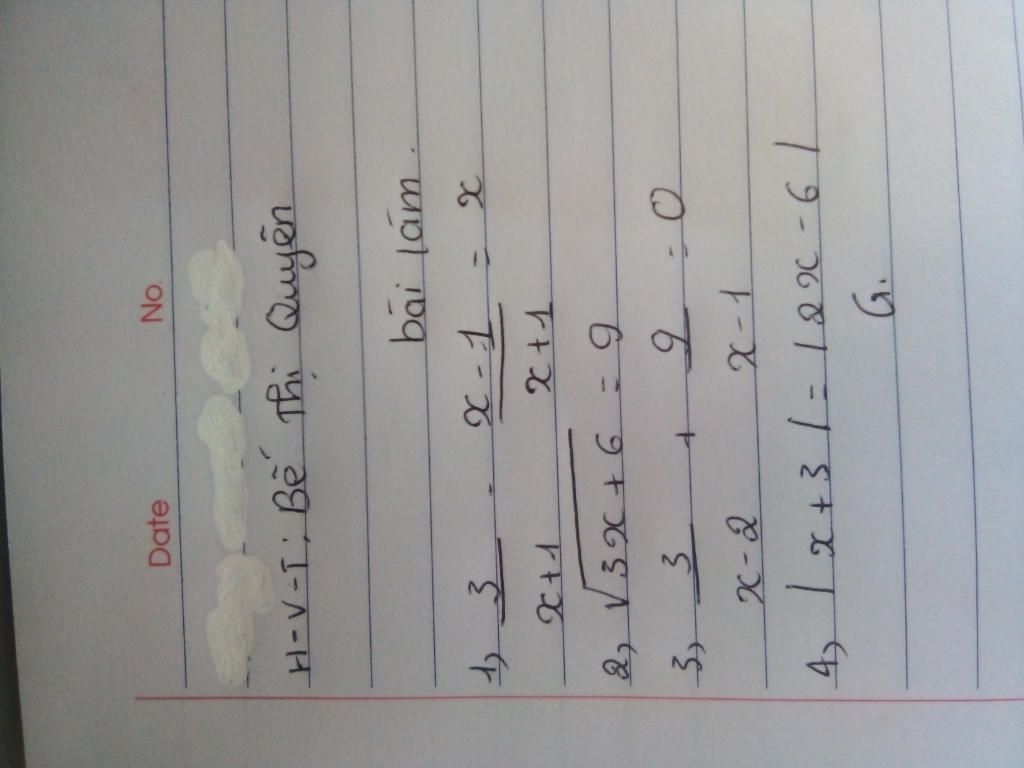 Date No.
H-V-T: Bế Thị Quyên
bài làm.
1, 3/x+1 - x-1/x+1 = x
2, √3x+6 = 9
3, 3/x-2 + 9/x-1 = 0
4, |x+3| = |2x-6|
G.